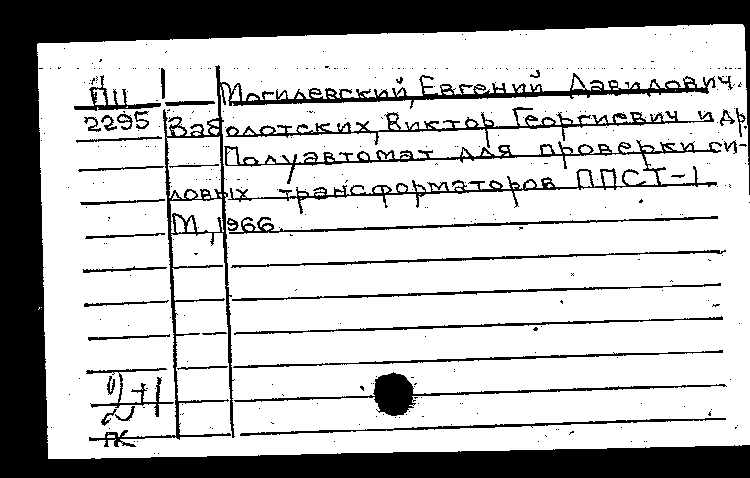 ПЦ Могилевский, Евгений Давидович.
2295 Заболотских, Виктор Георгиевич и др.
Полуавтомат для проверки си-
ловых трансформаторов ППСТ-1
М., 1966.
2+1
ПК